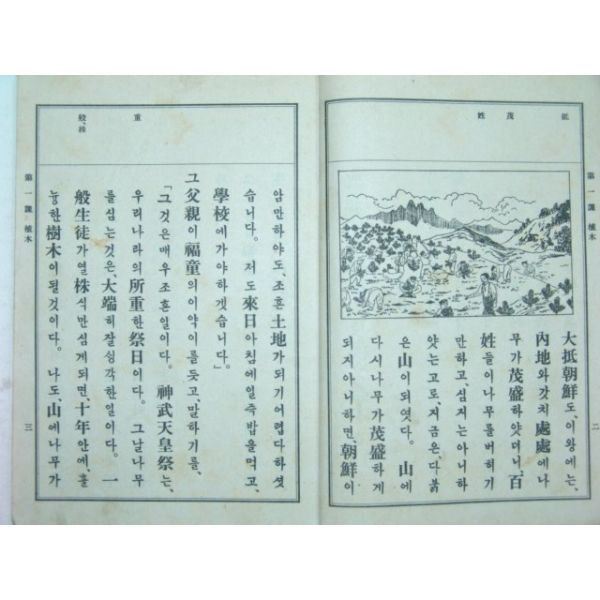 抵 茂 姓
第一課 植木
大抵朝鮮도、이왕에는、
內地와갓치處處에나
무가茂盛하얏더니、百
姓들이나무를버히기
만하고、심지는아니하
얏는고로、지금은다붉
은山이되엿다。山에
다시나무가茂盛하게
되지아니하면、朝鮮이
二
重
般、株
암만하야도、조흔土地가되기어렵다하셧
습니다。저도來日아침에일즉밥을먹고、
學校에가야하겟습니다」
그父親이福童의이약이를듯고、말하기를、
「그것은매우조흔일이다。神武天皇祭는、
우리나라의所重한祭日이다。그날나무
를심는것은、大端히잘심각한일이다。一
般生徒가열株식만심게되면、十年안에、훌
늉한樹木이될것이다。나도、山에나무가
第一課 植木
三